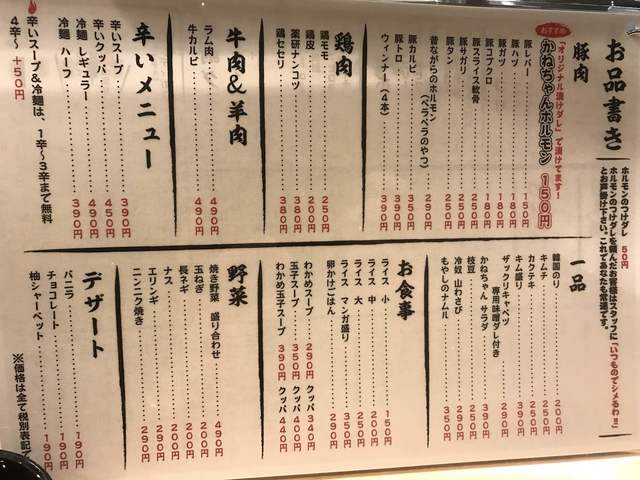 お品書き
ホルモンのつけダレ 50円
ホルモンのつけダレを頼んだお客様はスタッフに「いつものでシメるわ!!」
とお声掛け下さい。これであなたも常連です。
豚肉
おすすめ
「オリジナル漬けダレ」で漬けてます!
かねちゃんホルモン 150円
豚レバー 150円
豚ハツ 180円
豚ガツ 180円
豚コブクロ 180円
豚スライス軟骨 250円
豚サガリ 250円
豚タン 250円
昔ながらのホルモン 290円
(ベラベラのやつ)
豚カルビ 200円
豚トロ 390円
ウィンナー(4本) 390円
鶏肉
鶏モモ 250円
鶏皮 200円
薬研ナンコツ 380円
鶏セセリ 380円
牛肉&羊肉
ラム肉 490円
牛カルビ 490円
辛いメニュー
辛いスープ 300円
辛いクッパ 450円
冷麺 レギュラー 490円
冷麺 ハーフ 390円
辛いスープ&冷麺は、1辛〜3辛まで無料
4辛〜 +50円
一品
韓国のり 200円
キムチ 250円
カクテキ 250円
キム盛り 390円
ザックリキャベツ 290円
専用味噌ダレ付き
かねちゃん サラダ 390円
枝豆 250円
冷奴 山わさび 250円
もやしのナムル 350円
お食事
ライス 小 150円
ライス 中 200円
ライス 大 250円
ライス マンガ盛り 350円
卵かけごはん 290円
わかめスープ 290円 クッパ 340円
玉子スープ 350円 クッパ 440円
わかめ玉子スープ 390円 クッパ 440円
野菜
焼き野菜 盛り合わせ 490円
玉ねぎ 200円
長ネギ 200円
ナス 200円
エリンギ 290円
ニンニク焼き 290円
デザート
バニラ 190円
チョコレート 190円
柚シャーベット 190円
※価格は全て税別表記で